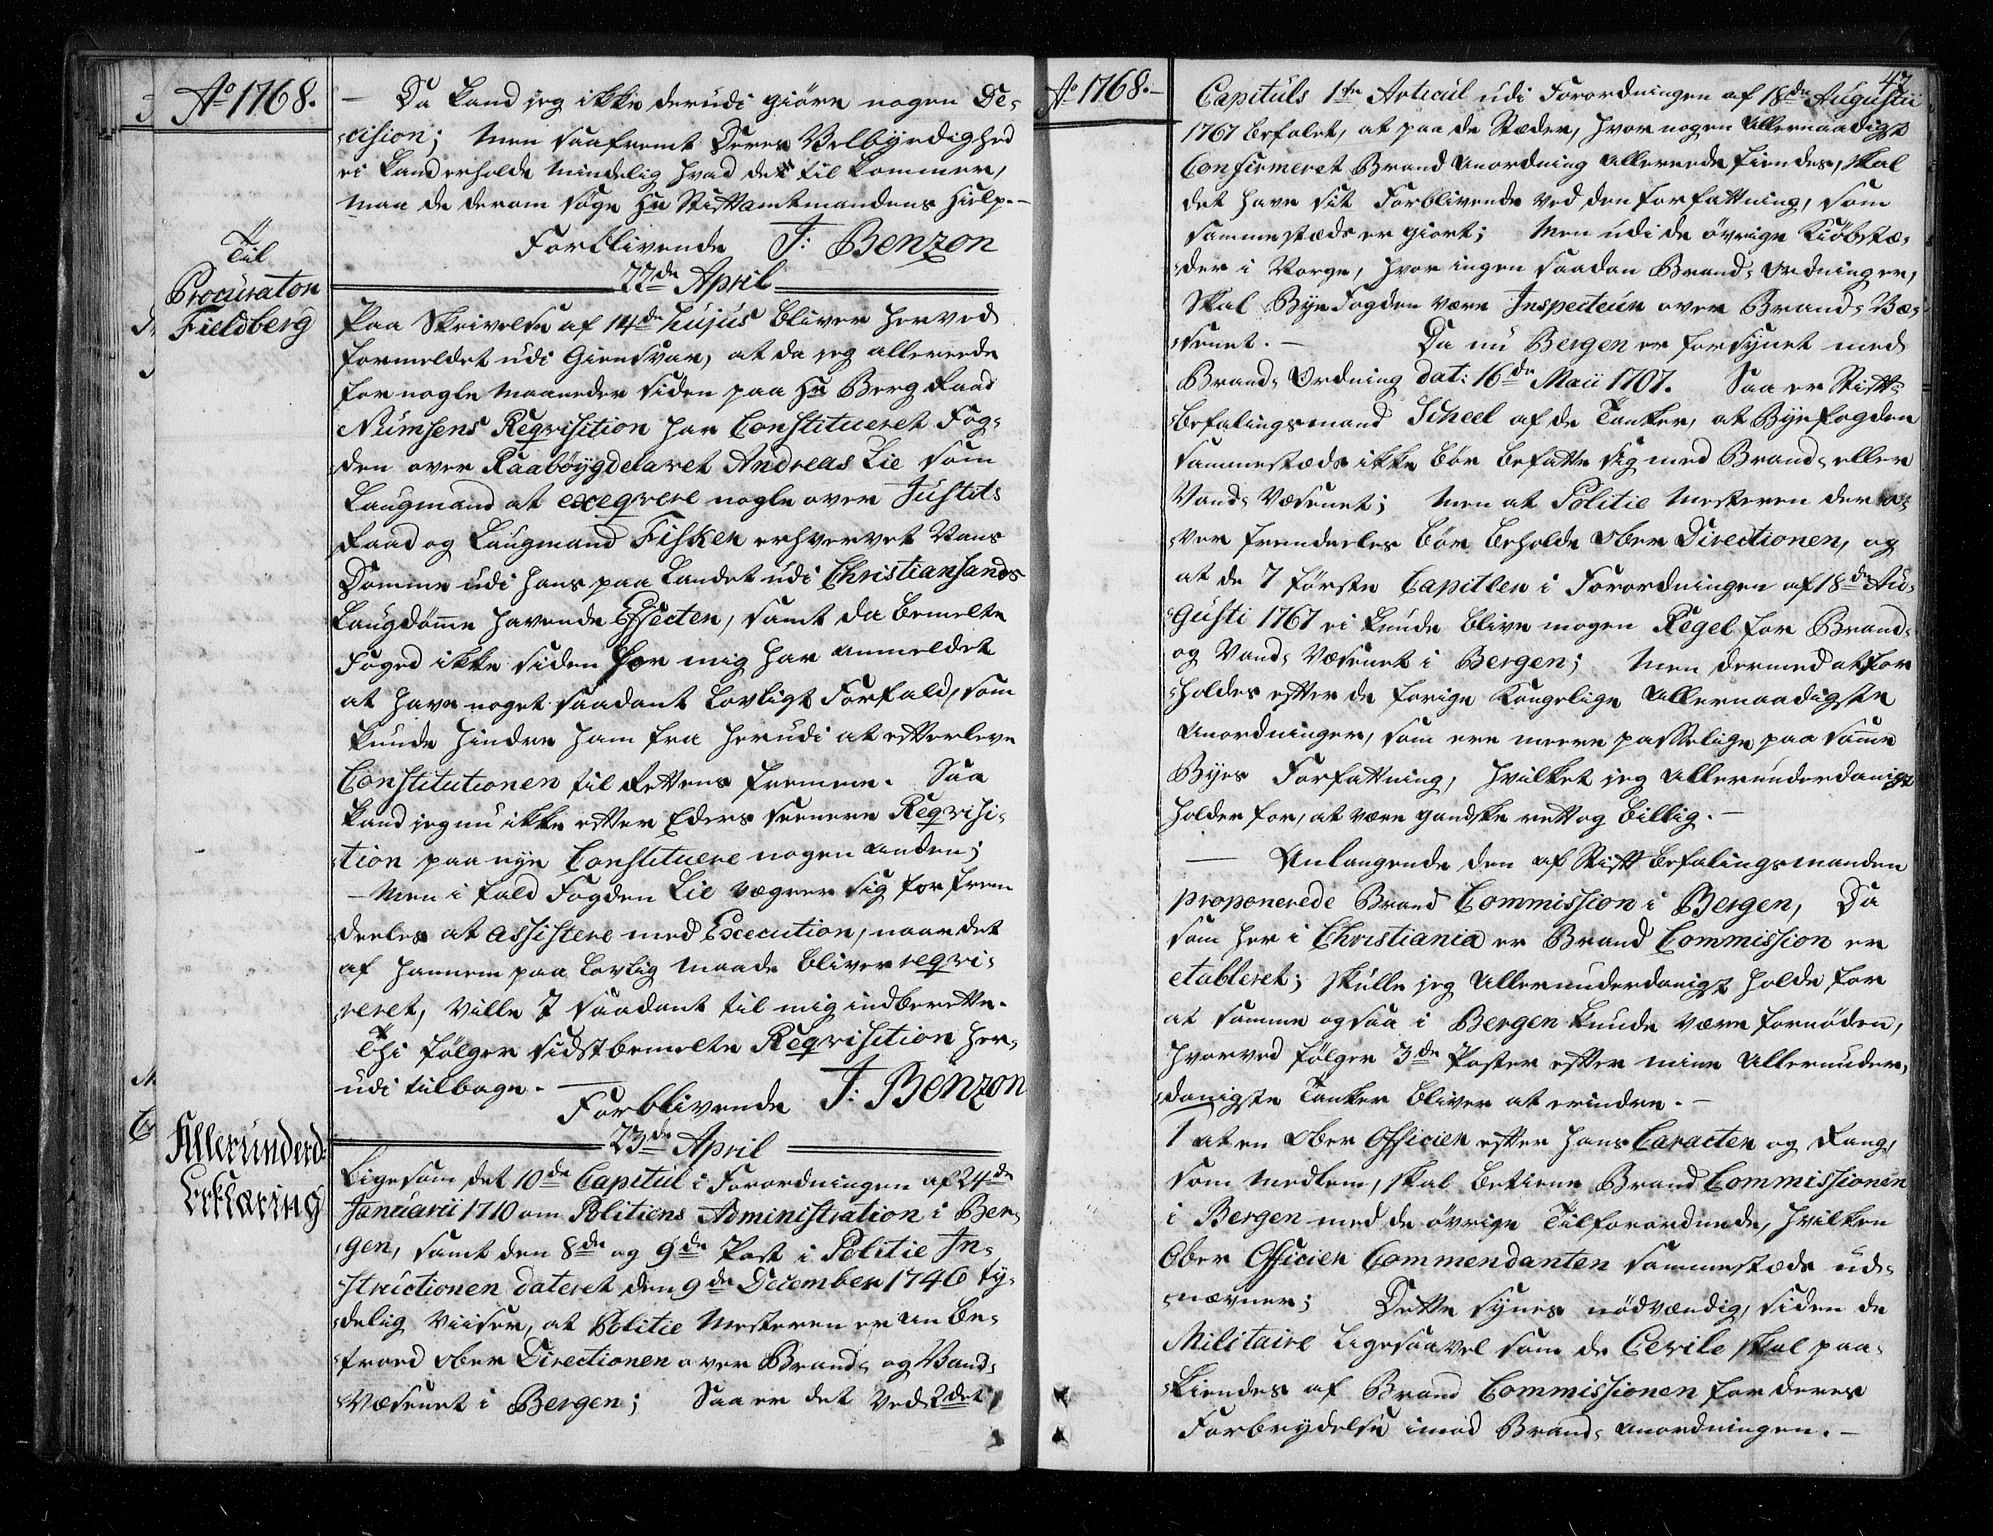 Ao 1768.
- Da kand jeg ikke derudi giøre nogen De-
cision; Men saafremt Deres Velbyrdighed
ei kand erholde mindelig hvad det til kommer,
maa de derom søge Hr Stiftamtmandens Hielp. -
Forblivende J: Benzon
22de April
Til
Procurator
Fieldberg
Paa Skrivelse af 14de hujus bliver herved
formeldet udi Giensvar, at da jeg allereede
for nogle Maaneder siden paa Hr Berg Raad
Numsens Reqvisition har Constitueret Fog-
den over Raabøygdelaret Andreas Lie som
Laugmand at exeqvere nogle over Justits
Raad og Laugmand Fisker erhvervet
Domme udi hans paa Landet udi Christiansands
Laugdømme havende Effecter, samt da bemelte
Foged ikke siden for mig har anmeldet
at have noget saadant Lovligt Forfald, som
kunde hindre ham fra herudi at efterleve
Constitutionen til Rettens fremme. Saa
kand jeg nu ikke efter Eders seenere Reqvisi-
tion paa nye Constituere nogen anden;
- Men i fald Fogden Lie vægrer sig for frem
deeles at assistere med Execution, naar det
af hannem paa Lovlig Maade bliver reqvi-
reret, ville I saadant til mig indberette.
Thi følger sidstbemelte Reqvisition her-
udi tilbage. -
Forblivende J: Benzon
23de April
Allerunderd:
Erklæring
Ligesom det 10de Capitul i Forordningen af 24de
Januarii 1710 om Politiens Administration i Ber-
gen, samt den 8de og 9de Post i Politie In-
structionen dateret den 9de December 1746 ty-
delig viiser, at Politie Mesteren er anbe-
troed Ober Directionen over Brand- og Vand-
Væsenet i Bergen; Saa er det ved 2det
Ao 1768. -
47
Capituls 1te Articul udi Forordningen af 18de Augustii
1767 befalet, at paa de Stæder, hvor nogen Allernaadigst
Confirmeret Brand Anordning allereede findes, skal
det have sit Forblivende ved den forfattning, som
sammestæds er giort; Men udi de øvrige Kiøbstæ-
der i Norge, hvor ingen saadan Brand-Ordninger,
skal Bye Fogden være Inspecteur over Brand-Væ-
senet. - Da nu Bergen er forsynet med
Brand-Ordning dat: 16de Maii 1707. Saa er Stift-
befalingsmand Scheel af de Tanker, at Byefogden
sammestæds ikke bør befatte sig med Brand- eller
Vand-Væsenet; Men at Politie Mesteren der o-
ver fremdeeles bør beholde Ober Directionen, og
at de 7 første Capitler i Forordningen af 18de Au-
gusti 1767 ei kunde blive nogen Regel for Brand-
og Vand-Væsenet i Bergen; Men dermed at for
holdes efter de forige Kongelige Allernaadigste
Anordninger, som ere meere passelige paa samme
Byes Forfattning, hvilket jeg Allerunderdanigst
holder for, at være gandske rett og billig. -
- Anlangende den af Stiftbefalingsmanden
proponerede Brand Commission i Bergen, Da
som her i Christiania er Brand Commission er
etableret; skulle jeg Allerunderdanigst holde for
at samme ogsaa i Bergen kunde være fornøden,
hvorved følger 3de Poster efter mine Allerunder-
danigste Tanker bliver at erindre. -
1 at en Ober Officier efter hans Caracter og Rang,
som Medlem, skal betiene Brand Commissionen
i Bergen med de øvrige Tilforordnede, hvilken
Ober Officier Commendanten sammestæds ud-
nævner; Dette synes nødvændig, siden de
Militaire ligesaavel som de Cevile skal paa-
kiendes af Brand Commissionen for deres
Forbrydelse imod Brand-Anordningen. -